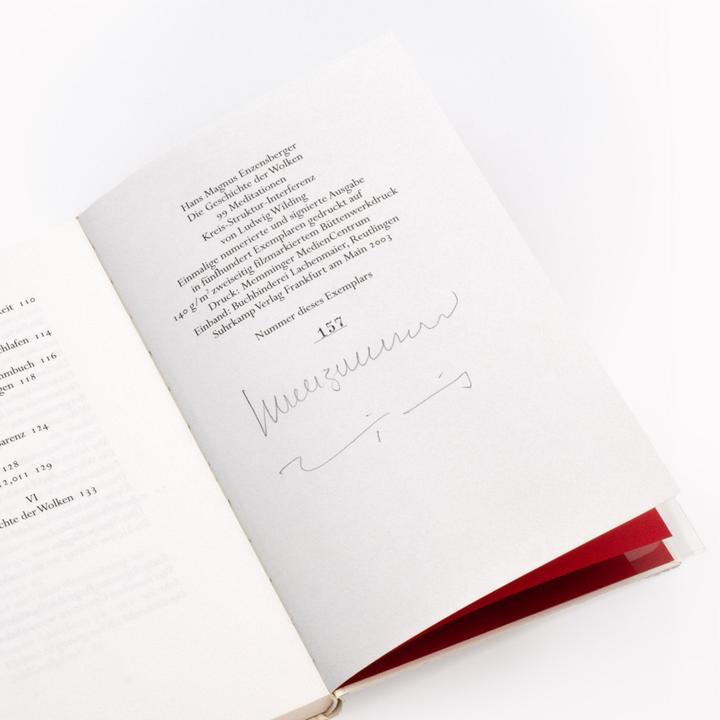 keit 110
hlafen 114
mmbuch 116
gen 118
arenz 124
128
12,011 129
VI
chte der Wolken 133
Hans Magnus Enzensberger
Die Geschichte der Wolken
99 Meditationen
Kreis-Struktur-Interferenz
von Ludwig Wilding
Einmalige numerierte und signierte Ausgabe
in fünfhundert Exemplaren gedruckt auf
140 g/m² zweiseitig filzmarkiertem Büttenwerkdruck
Druck: Memminger MedienCentrum
Einband: Buchbinderei Lachenmaier, Reutlingen
Suhrkamp Verlag Frankfurt am Main 2003
Nummer dieses Exemplars
157